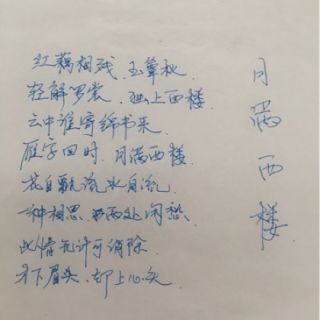 红藕相残.玉簟秋.
轻解罗裳.独上西楼
云中谁寄锦书来
雁字回时.月满西楼.
花自飘流水自流.
一种相思.两处闲愁.
此情无计可消除
才下眉头.却上心头
月满西楼